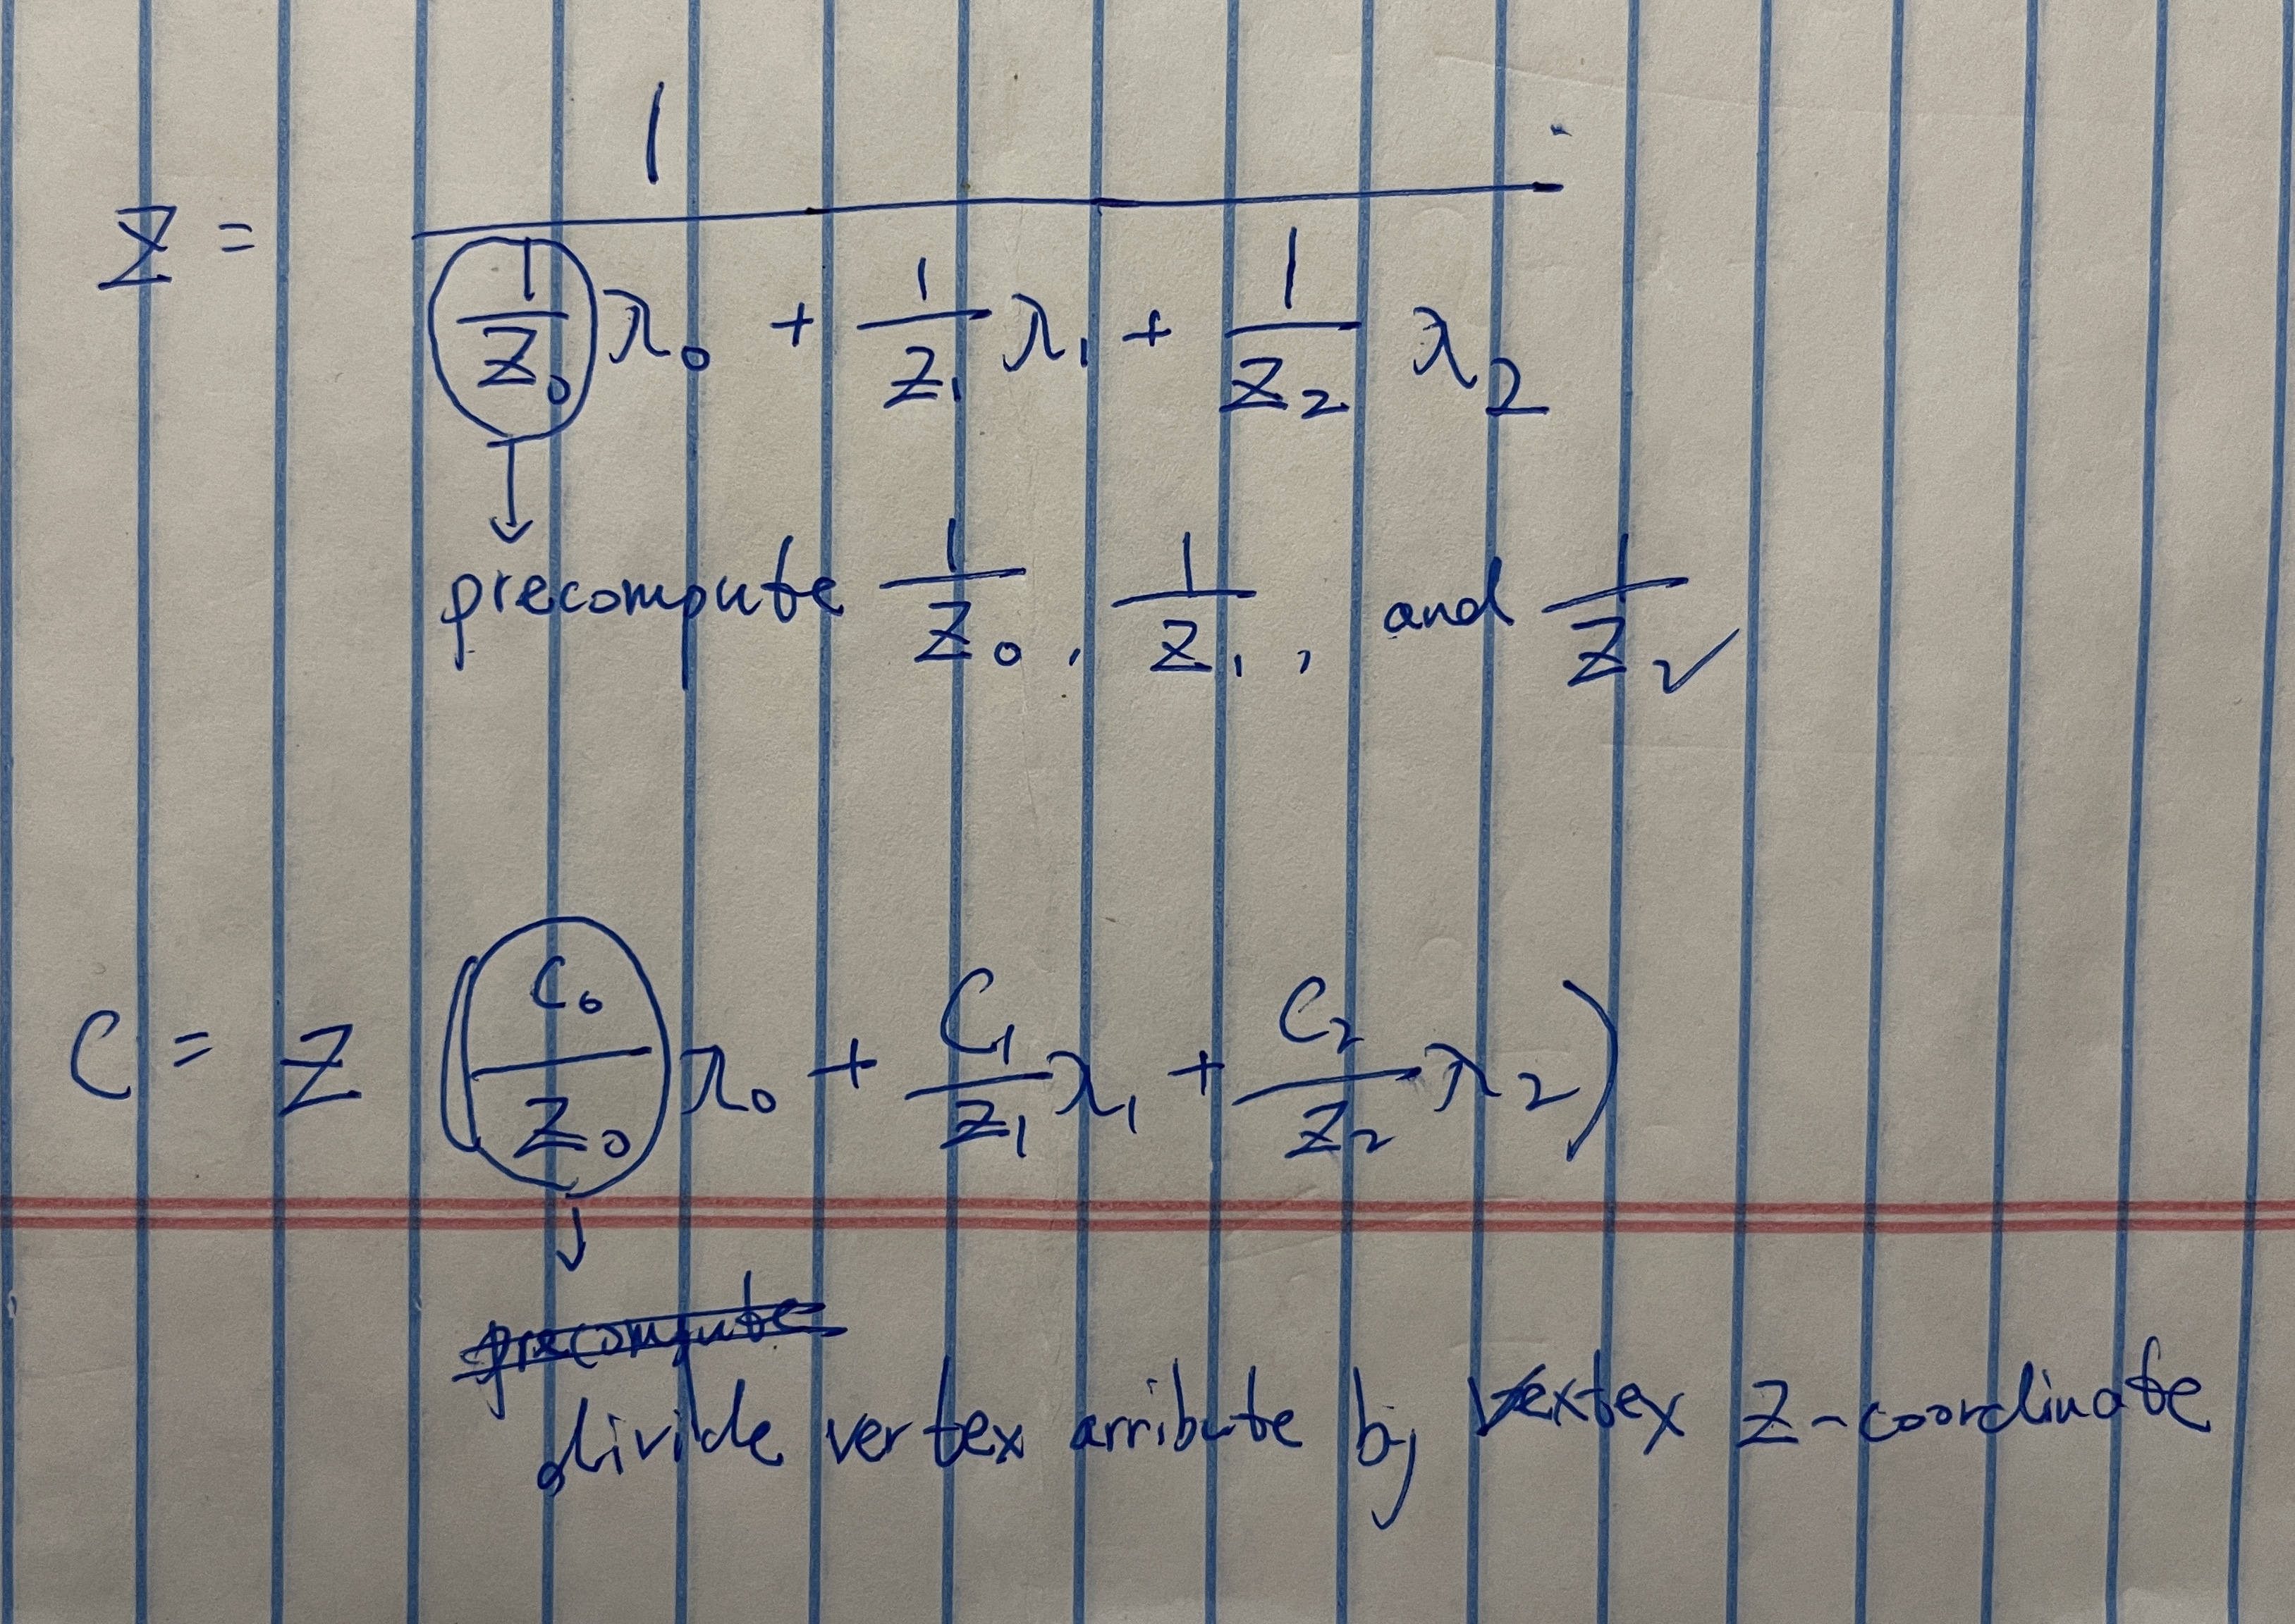 Z = 1 / (1/Z₀ λ₀ + 1/Z₁ λ₁ + 1/Z₂ λ₂)
precompute 1/Z₀, 1/Z₁, and 1/Z₂
C = Z (C₀/Z₀ λ₀ + C₁/Z₁ λ₁ + C₂/Z₂ λ₂)
precompute
divide vertex arribute by vextex Z-coordinate